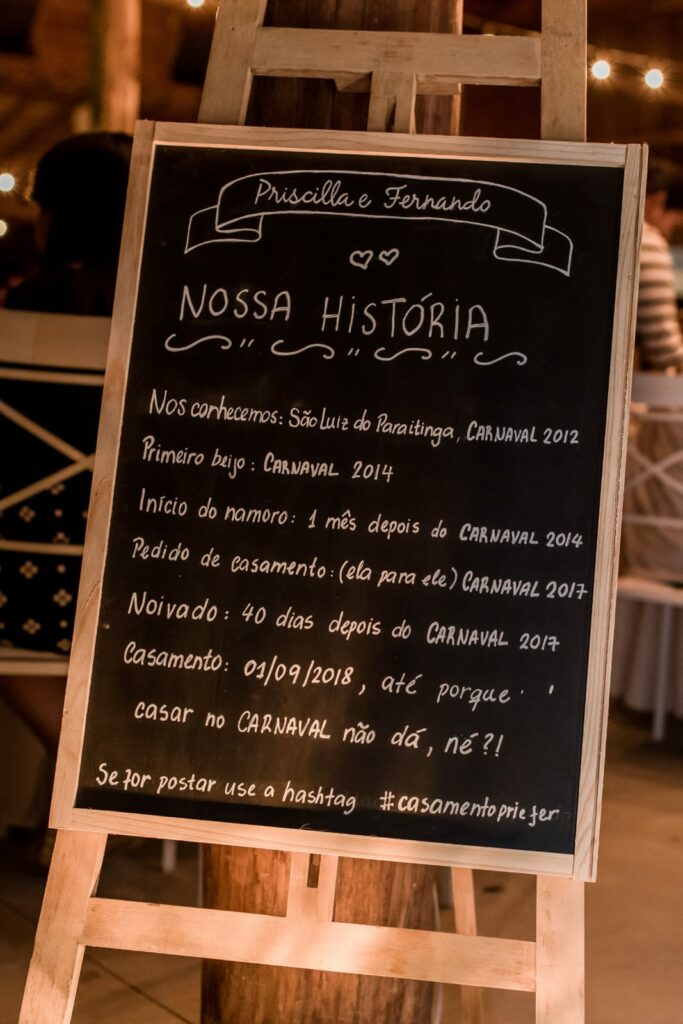 Priscilla e Fernando
NOSSA HISTÓRIA
Nos conhecemos: São Luiz do Paraitinga, CARNAVAL 2012
Primeiro beijo: CARNAVAL 2014
Início do namoro: 1 mês depois do CARNAVAL 2014
Pedido de casamento: (ela para ele) CARNAVAL 2017
Noivado: 40 dias depois do CARNAVAL 2017
Casamento: 01/09/2018, até porque
casar no CARNAVAL não dá, né?!
Se for postar use a hashtag #casamentopriefer